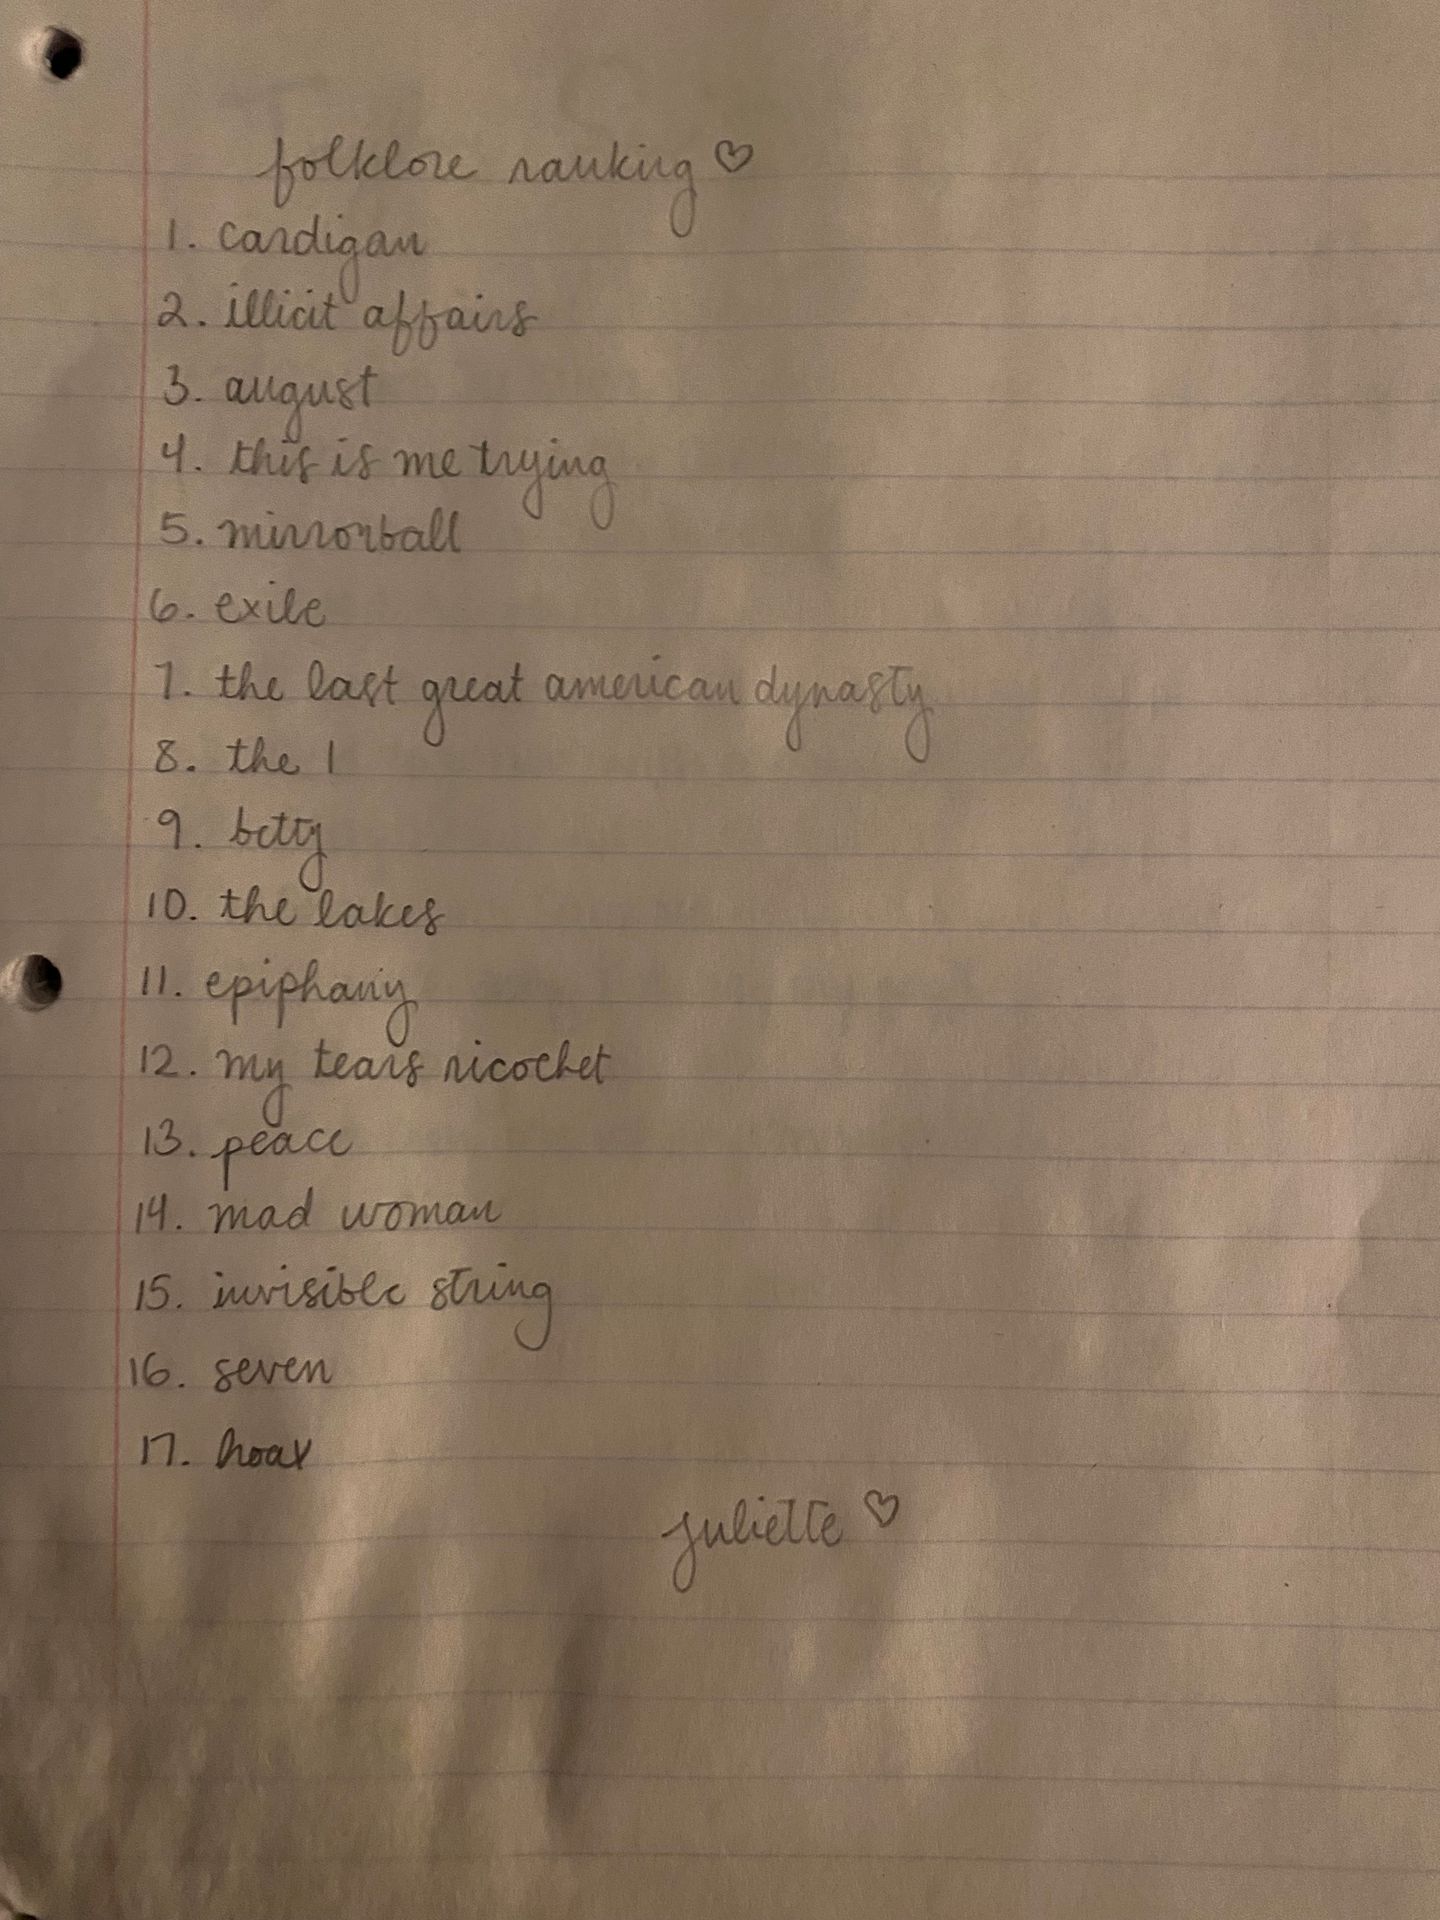 folklore ranking ♡
1. cardigan
2. illicit affairs
3. august
4. this is me trying
5. mirrorball
6. exile
7. the last great american dynasty
8. the 1
9. betty
10. the lakes
11. epiphany
12. my tears ricochet
13. peace
14. mad woman
15. invisible string
16. seven
17. hoax
juliette ♡